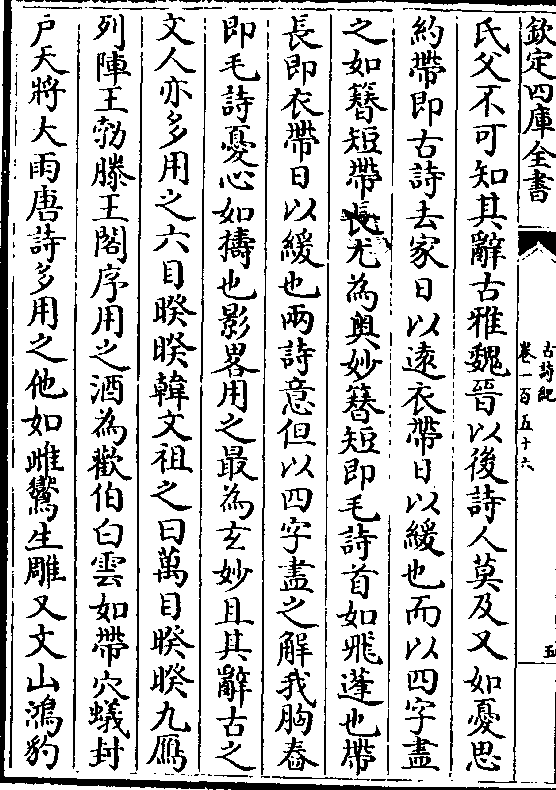 欽定四庫全書
古詩紀
卷一百五十六
五
氏父不可知其辭古雅魏晉以後詩人莫及又如憂思
約帶即古詩去家日以遠衣帶日以緩也而以四字盡
之如簪短帶長尤為奧妙簪短即毛詩首如飛蓬也帶
長即衣帶日以緩也兩詩意但以四字盡之解我胸舂
即毛詩憂心如擣也影畧用之最為玄妙且其辭古之
文人亦多用之六目睽睽韓文祖之曰萬目睽睽九鴈
列陣王勃滕王閣序用之酒為歡伯白雲如帶穴蟻封
戶天將大雨唐詩多用之他如雌鸞生雕又文山鴻豹